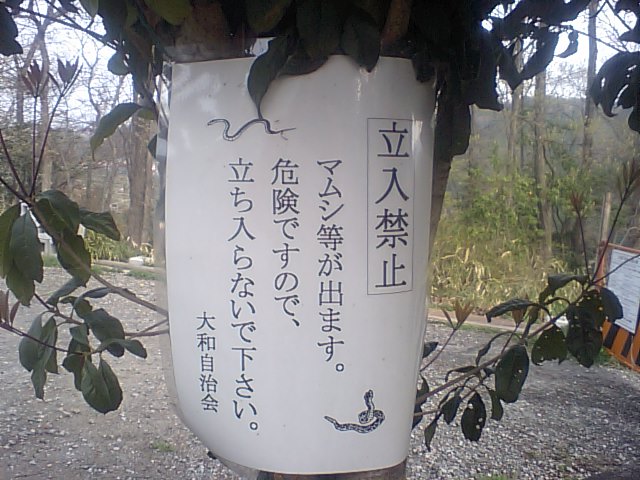 立入禁止
マムシ等が出ます。
危険ですので、
立ち入らないで下さい。
大和自治会